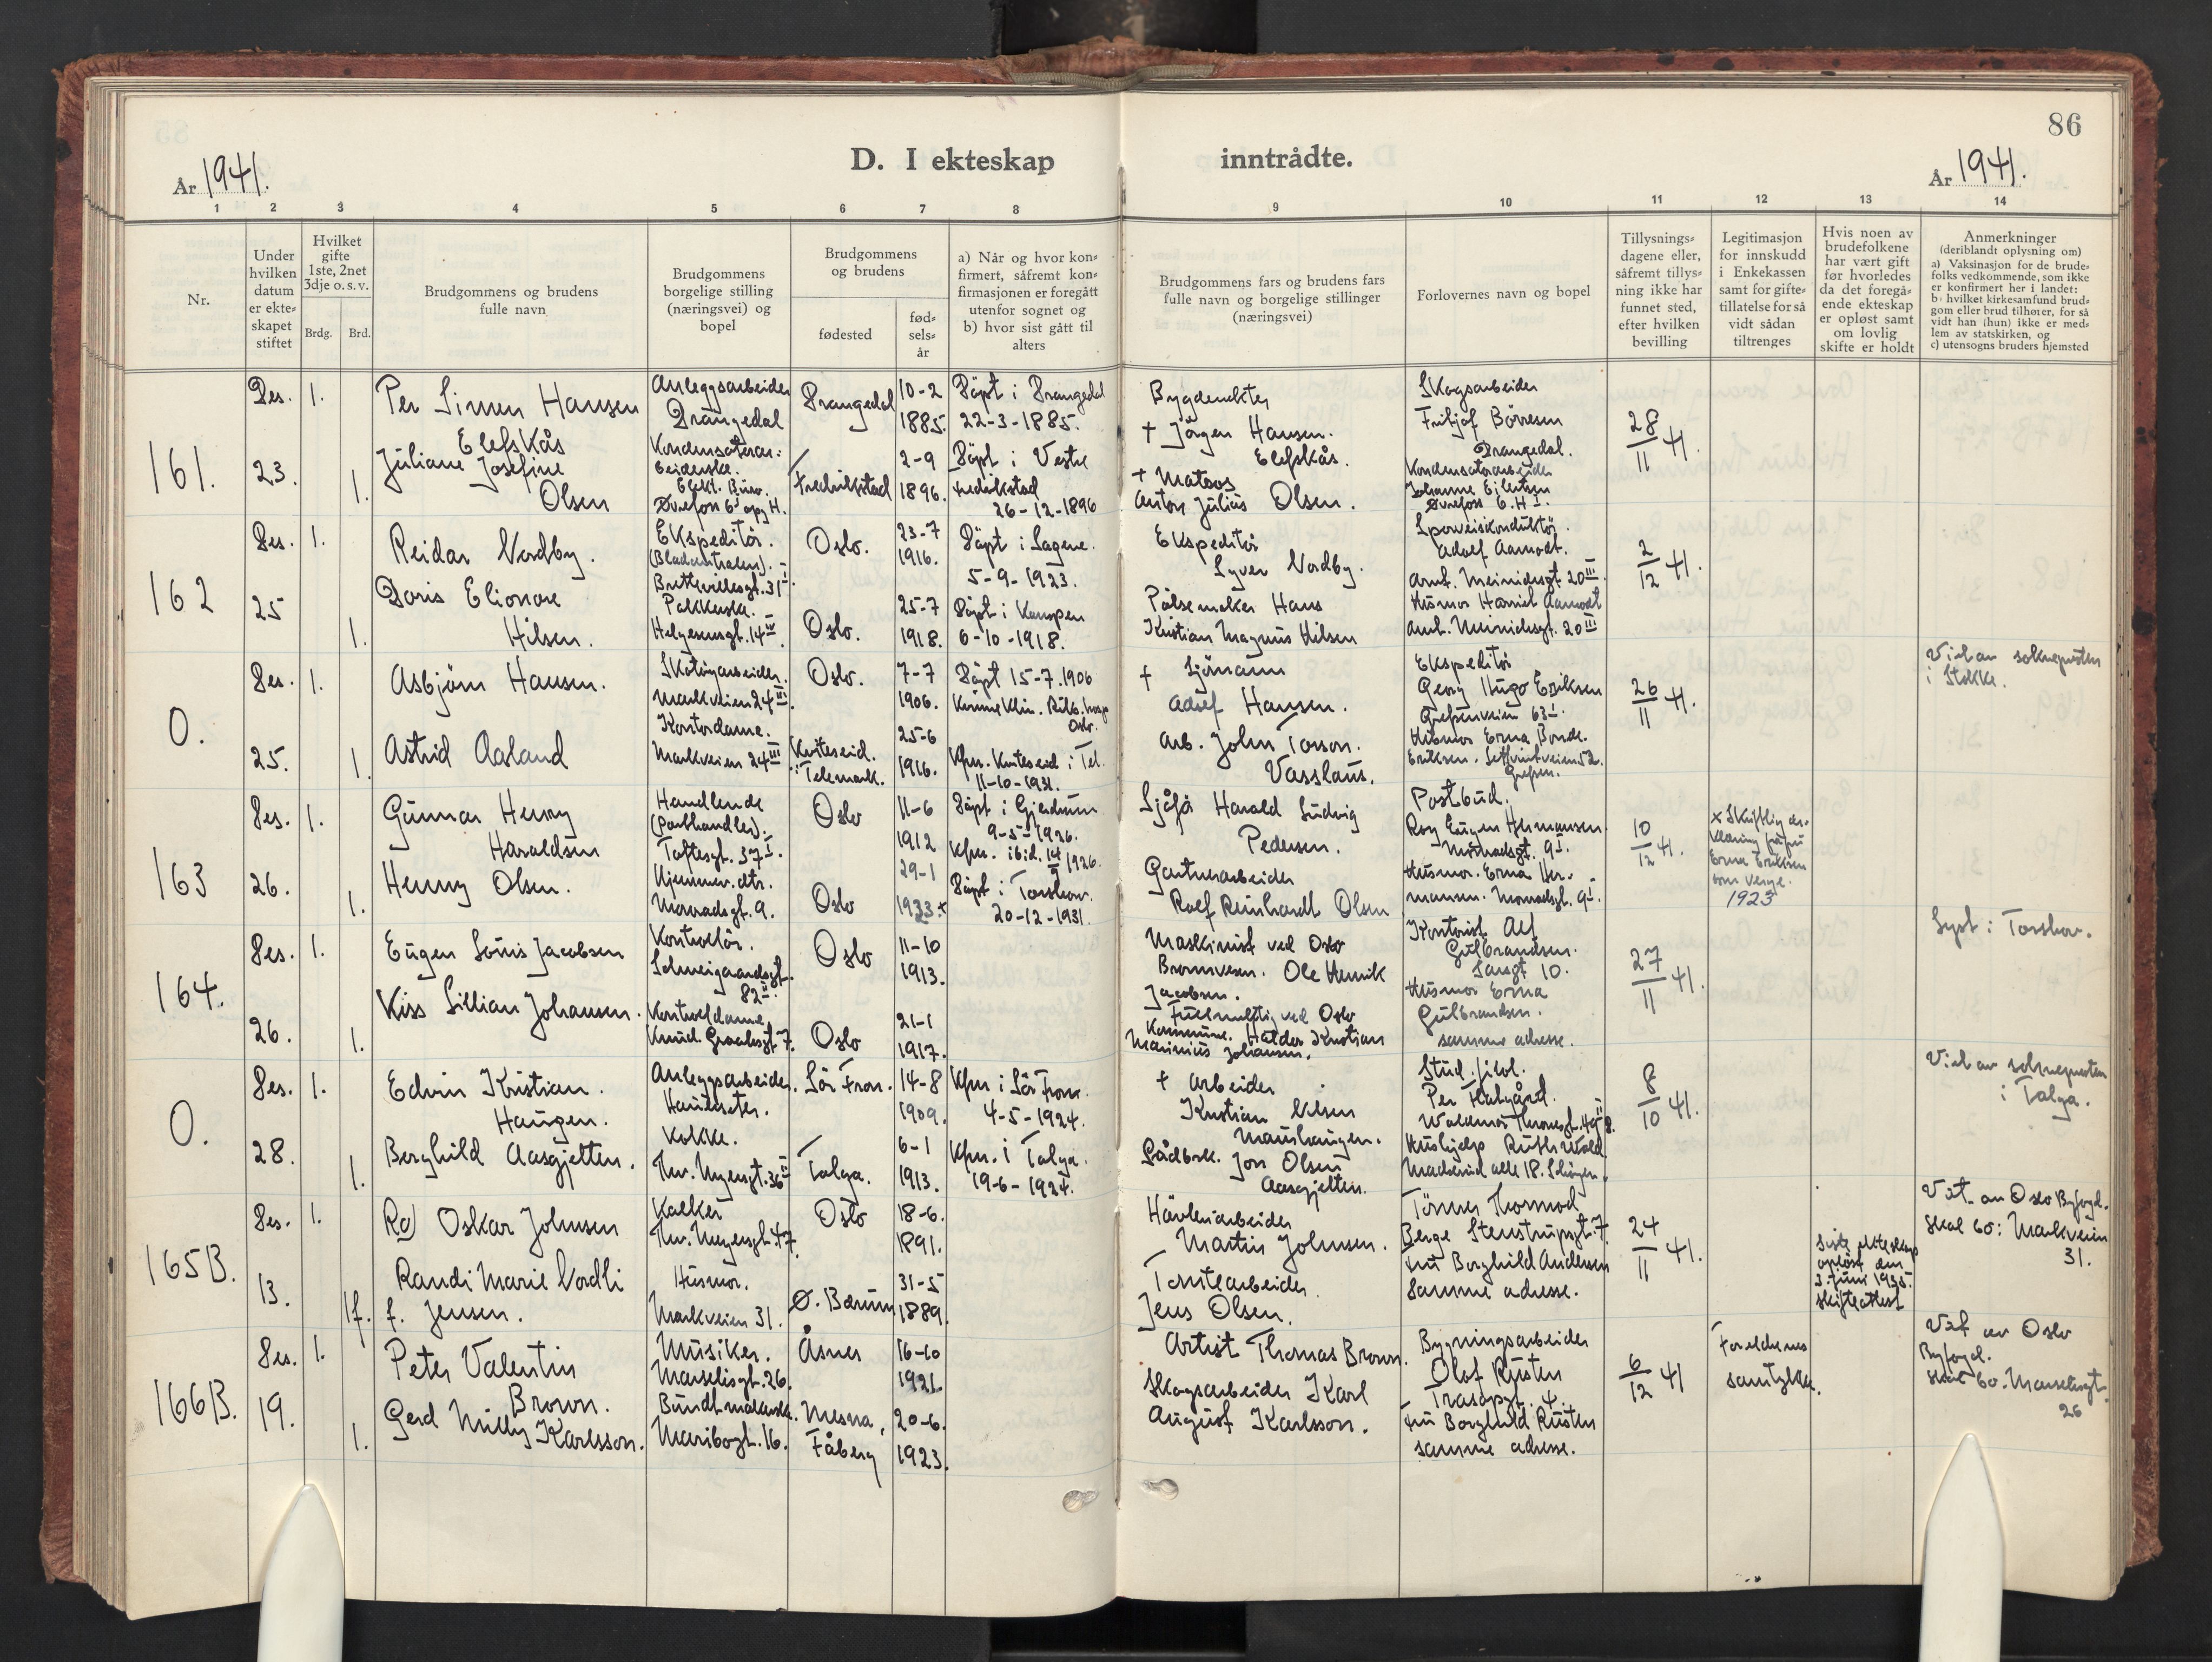 86
D. I ekteskap inntrådte.
År 1941.
År 1941.
1 2 3 4 5 6 7 8 9 10 11 12 13 14
Nr.
Under
hvilken
datum
er ekte=
skapet
stiftet
Hvilket
gifte
1ste, 2net
3dje o. s. v.
Brdg. Brd.
Brudgommens og brudens
fulle navn
Brudgommens
borgelige stilling
(næringsvei) og
bopel
Brudgommens
og brudens
fødested
fød=
sels=
år
a) Når og hvor kon=
firmert, såfremt kon=
firmasjonen er foregått
utenfor sognet og
b) hvor sist gått til
alters
Brudgommens fars og brudens fars
fulle navn og borgelige stillinger
(næringsvei)
Forlovernes navn og bopel
Tillysnings=
dagene eller,
såfremt tillys=
ning ikke har
funnet sted,
efter hvilken
bevilling
Legitimasjon
for innskudd
i Enkekassen
samt for gifte=
tillatelse for så
vidt sådan
tiltrenges
Hvis noen av
brudefolkene
har vært gift
før hvorledes
da det foregå=
ende ekteskap
er opløst samt
om lovlig
skifte er holdt
Anmerkninger
(deriblandt oplysning om)
a) Vaksinasjon for de brude=
folks vedkommende, som ikke
er konfirmert her i landet:
b) hvilket kirkesamfund brud=
gom eller brud tilhører, for så
vidt han (hun) ikke er med=
lem av statskirken, og
c) utensogns bruders hjemsted
161.
Des.
23.
1.
1.
Per Simen Hansen
Elefskås
Juliane Josefine
Olsen
Anleggsarbeider
Drangedal
Kondensatorar=
beiderske.
Elekt. Büro.
Drangedal
Fredrikstad
10-2
1885.
2-9
1896.
Döpt i Drangedal
22-3-1885.
Döpt i Vestre
Fredrikstad
26-12-1896
† Jörgen Hansen.
Elefskås.
† Matros
Anton Julius Olsen.
Skogsarbeider
Fritjof Börresen
Drangedal.
Kondensatorarbeider
Johanne Eilertsen
28/11 41.
162
Des.
25
1.
1.
Reidar Nordby.
Doris Elionore
Hilsen.
Ekspeditör.
(Bladcentralen).
Brettevillesgt. 31 I.
Pakkerske.
Helgesensgt. 14 IV.
Oslo.
Oslo.
23-7
1916.
25-7
1918.
Döpt i Sagene.
5-9-1923.
Döpt i Kampen
6-10-1918.
Ekspeditör
Syver Nordby.
Pölsemaker Hans
Kristian Magnus Hilsen
Sporveiskonduktör.
Adolf Aamodt.
Arnt. Meinichsgt. 20 III.
Husmor Harriet Aamodt
Arnt. Meinichsgt. 20 III
2/12 41.
0.
Des.
25.
1.
1.
Asbjörn Hansen.
Astrid Aasland
Skotöyarbeider.
Markveien 24 III.
Kontordame.
Markveien 24 III
Oslo.
Kviteseid.
i Telemark.
7-7
1906.
25-6
1916.
Döpt 15-7.1906
Kvinneklin. Riks. hosp
Oslo.
Kfm. Kviteseid i Tel.
11-10-1931.
† Sjömann
Adolf Hansen.
Arb. John Torson.
Vasslaus.
Ekspeditör
Georg Hugo Eriksen
Grefsenveien 63 I.
Husmor Erna Borde.
Eriksen.
Grefsen.
26/11 41.
Viet av sokneprsten
i Stokke.
163
Des.
26.
1.
1.
Gunnar Henry
Haraldsen
Henny Olsen.
Handlende
Toftesgt. 37 I.
Hjemmev. dtr.
Monradsgt. 9.
Oslo
Oslo
11-6
1912
29-1
1923 x
Döpt i Gjerdrum
9-5-1926.
Kfm. ibid. 1926.
Döpt i Torshov.
20-12-1931.
Sjåför Harald Ludvig
Pedersen.
Gartnerarbeider
Rolf Reinhardt Olsen
Postbud.
Roy Eugen Hermansen.
Monradsgt. 9 I.
Husmor. Erna Her-
mansen. Monradsgt. 9 I.
10/12 41.
x Skriftlig er-
klæring fra fru
Erna Eriksen
som verge.
1923
164.
Des.
26.
1.
1.
Eugen Louis Jacobsen
Kiss Lillian Johansen.
Kontrollör.
Schweigaardsgt.
82 II.
Kontroldame
Knud. Graahsgt 7.
Oslo
Oslo
11-10
1913.
21-1
1917.
Maskinist ved Oslo
Brannvesen. Ole Henrik
Jacobsen.
Fullmektig ved Oslo
Kommune. Haldor Kristian
Marinius Johansen.
Kontorist Alf
Gulbrandsen.
Sarsgt 10.
Husmor Erna
Gulbrandsen.
samme adresse.
27/11 41.
Lyst i Torshov.
0.
Des.
28.
1.
1.
Edvin Kristian.
Haugen.
Borghild Aasgjelten.
Anleggsarbeider.
Kokke.
Thv. Meyersgt. 36 II
Sör Fron.
Tolga.
14-8
1909.
6-1
1913.
Kfm i Sör Fron.
4-5-1924.
Kfm. i Tolga.
19-6-1924.
† Arbeider
Kristian Nilsen
Maushaugen.
Jon Olsen
Aasgjelten.
Stud. filol.
Waldemar Thranesgt. 49 II B.
Hushjelp Ruth Wold
8/10 41.
Viet av sokneprsten
i Tolga.
165B.
Des.
13.
1.
1f.
Ro) Oskar Johnsen
Randi Marie Nordli
f. Jensen.
Kalker
Thv. Meyersgt. 47.
Husmor.
Markveien 31.
Oslo
Ø. Bærum
18-6.
1891.
31-5
1889.
Hövleriarbeider
Martin Johnsen.
Tomtearbeider.
Jens Olsen.
Tömmer Thormod
Berge Stenstrupsgt. 7.
Fru Borghild Andersen
Samme adresse.
24/11 41.
Siste ekteskap
oplöst den
3. Juni 1935.
Skifteattest
Viet av Oslo Byfogd.
Skal bo: Markveien
31.
166B.
Des.
19.
1.
1.
Peter Valentin
Brown.
Gerd Milly Karlsson.
Musiker.
Marselisgt. 26.
Buntmakerske.
Maribogt. 16.
Åsnes
Mesna,
Fåberg
16-10
1921.
20-6.
1923.
Artist Thomas Brown.
Skogsarbeider Karl
August Karlsson.
Bygningsarbeider
Olof Rusten
Trasopgt. 4.
Fru Borghild Rusten
samme adresse.
6/12 41
Foreldrenes
samtykke.
Viet av Oslo
Byfogd.
Skal bo. Marselisgt.
26